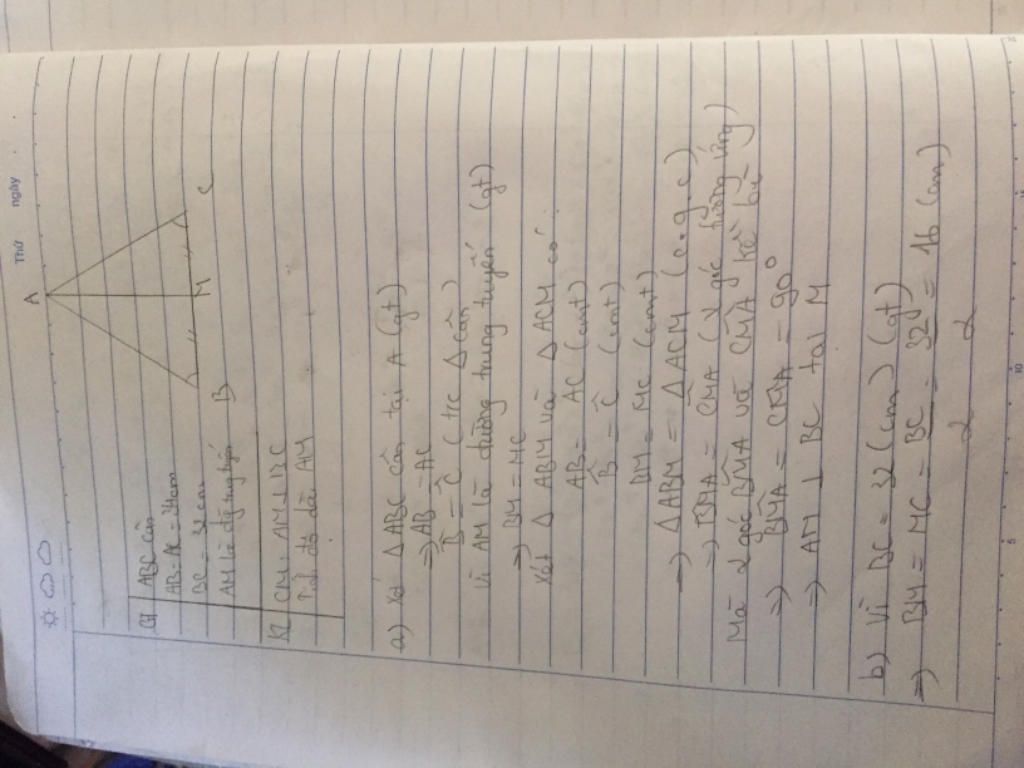 Thứ ngày
A
B M C
GT ABC cân
AB = AC = 34cm
BC = 32 cm
AM là đg tuyến
KL CM: AM ⊥ BC
độ dài AM
a) Xét Δ ABC cân tại A (gt)
=> AB = AC
B̂ = Ĉ (t/c Δ cân)
Vì AM là đường trung tuyến (gt)
=> BM = MC
Xét Δ ABM và Δ ACM có
AB = AC (cmt)
B̂ = Ĉ (cmt)
BM = MC (cmt)
=> Δ ABM = Δ ACM (c.g.c)
=> BM̂A = CM̂A (2 góc tương ứng)
Mà 2 góc BM̂A và CM̂A kề bù
=> BM̂A = CM̂A = 90°
=> AM ⊥ BC tại M
b) Vì BC = 32 (cm) (gt)
=> BM = MC = BC = 32 = 16 (cm)
2 2
5 10